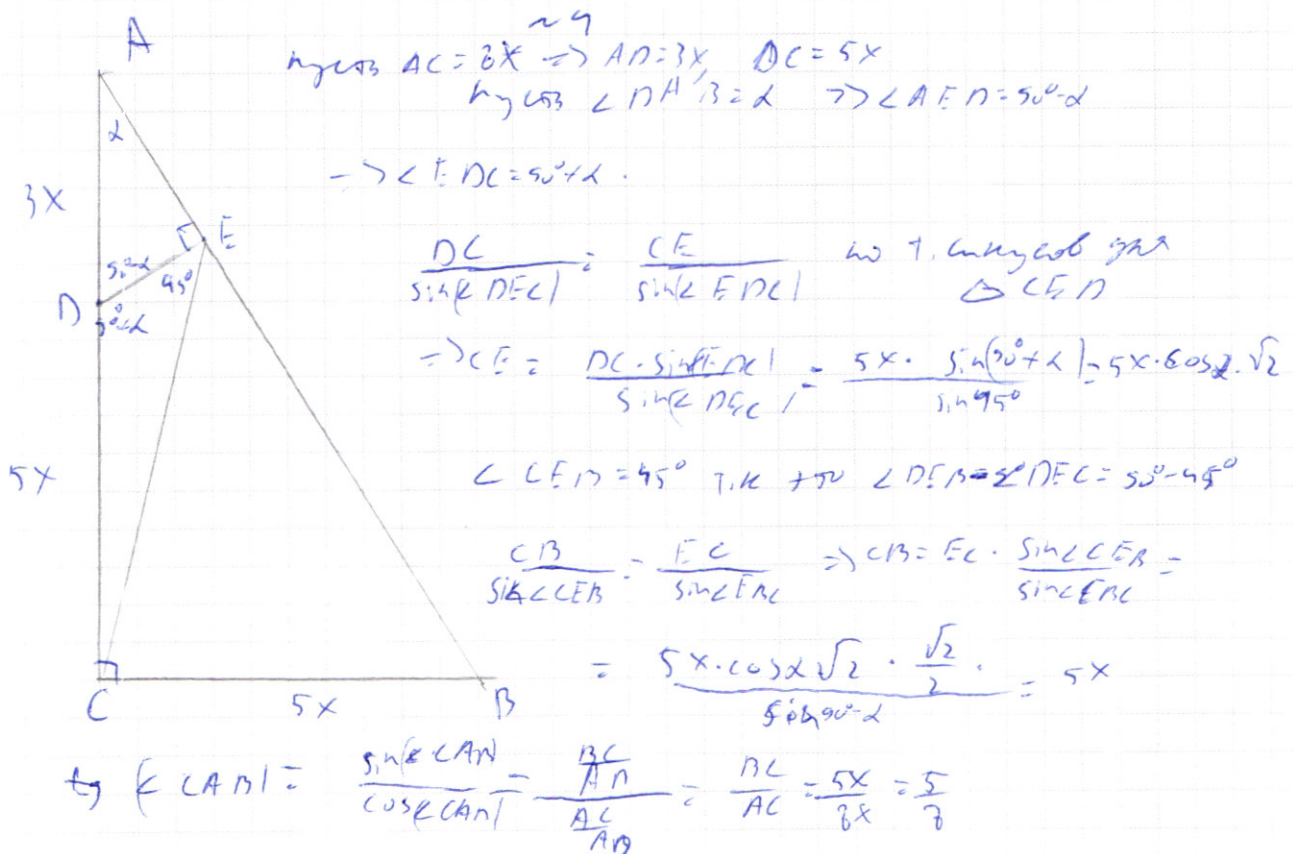 ~4
A
пусть AC = 8x => AD = 3x, DC = 5x
пусть ∠DAB = α => ∠AED = 90°-α
α
=> ∠EDC = 90°+α.
3x
E
90°-α
45°
DC/sin(∠DEC) = CE/sin(∠EDC) по т. синусов для △CED
D
90°+α
=> CE = DC·sin(EDC)/sin(∠DEC) = 5x·sin(90°+α)/sin45° = 5x·cosα·√2
5x
∠CEB = 45° т.к это ∠DEB-∠DEC = 90°-45°
CB/sin∠CEB = EC/sin∠EBC => CB = EC·sin∠CEB/sin∠EBC =
= 5x·cosα√2·√2/2·/sin90°-α = 5x
C
5x
B
tg(∠CAB) = sin(∠CAB)/cos(∠CAB) = BC/AB/AC/AB = BC/AC = 5x/8x = 5/8